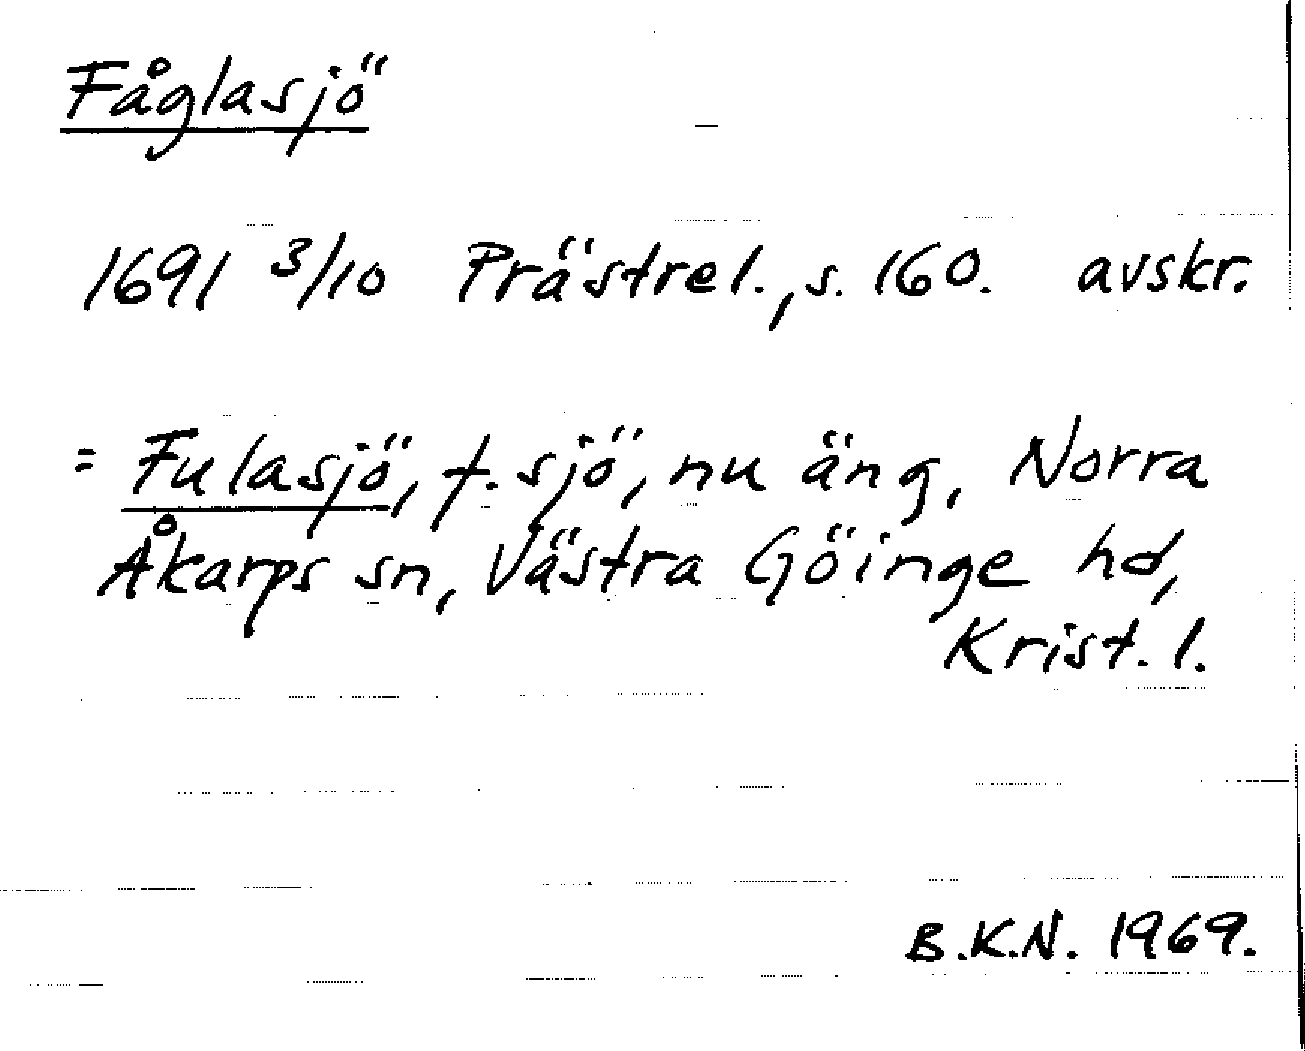 Fåglasjö
1691 3/10 Prästrel., s. 160. avskr.
= Fulasjö, f. sjö, nu äng, Norra
Åkarps sn, Västra Göinge hd,
Krist. l.
B.K.N. 1969.